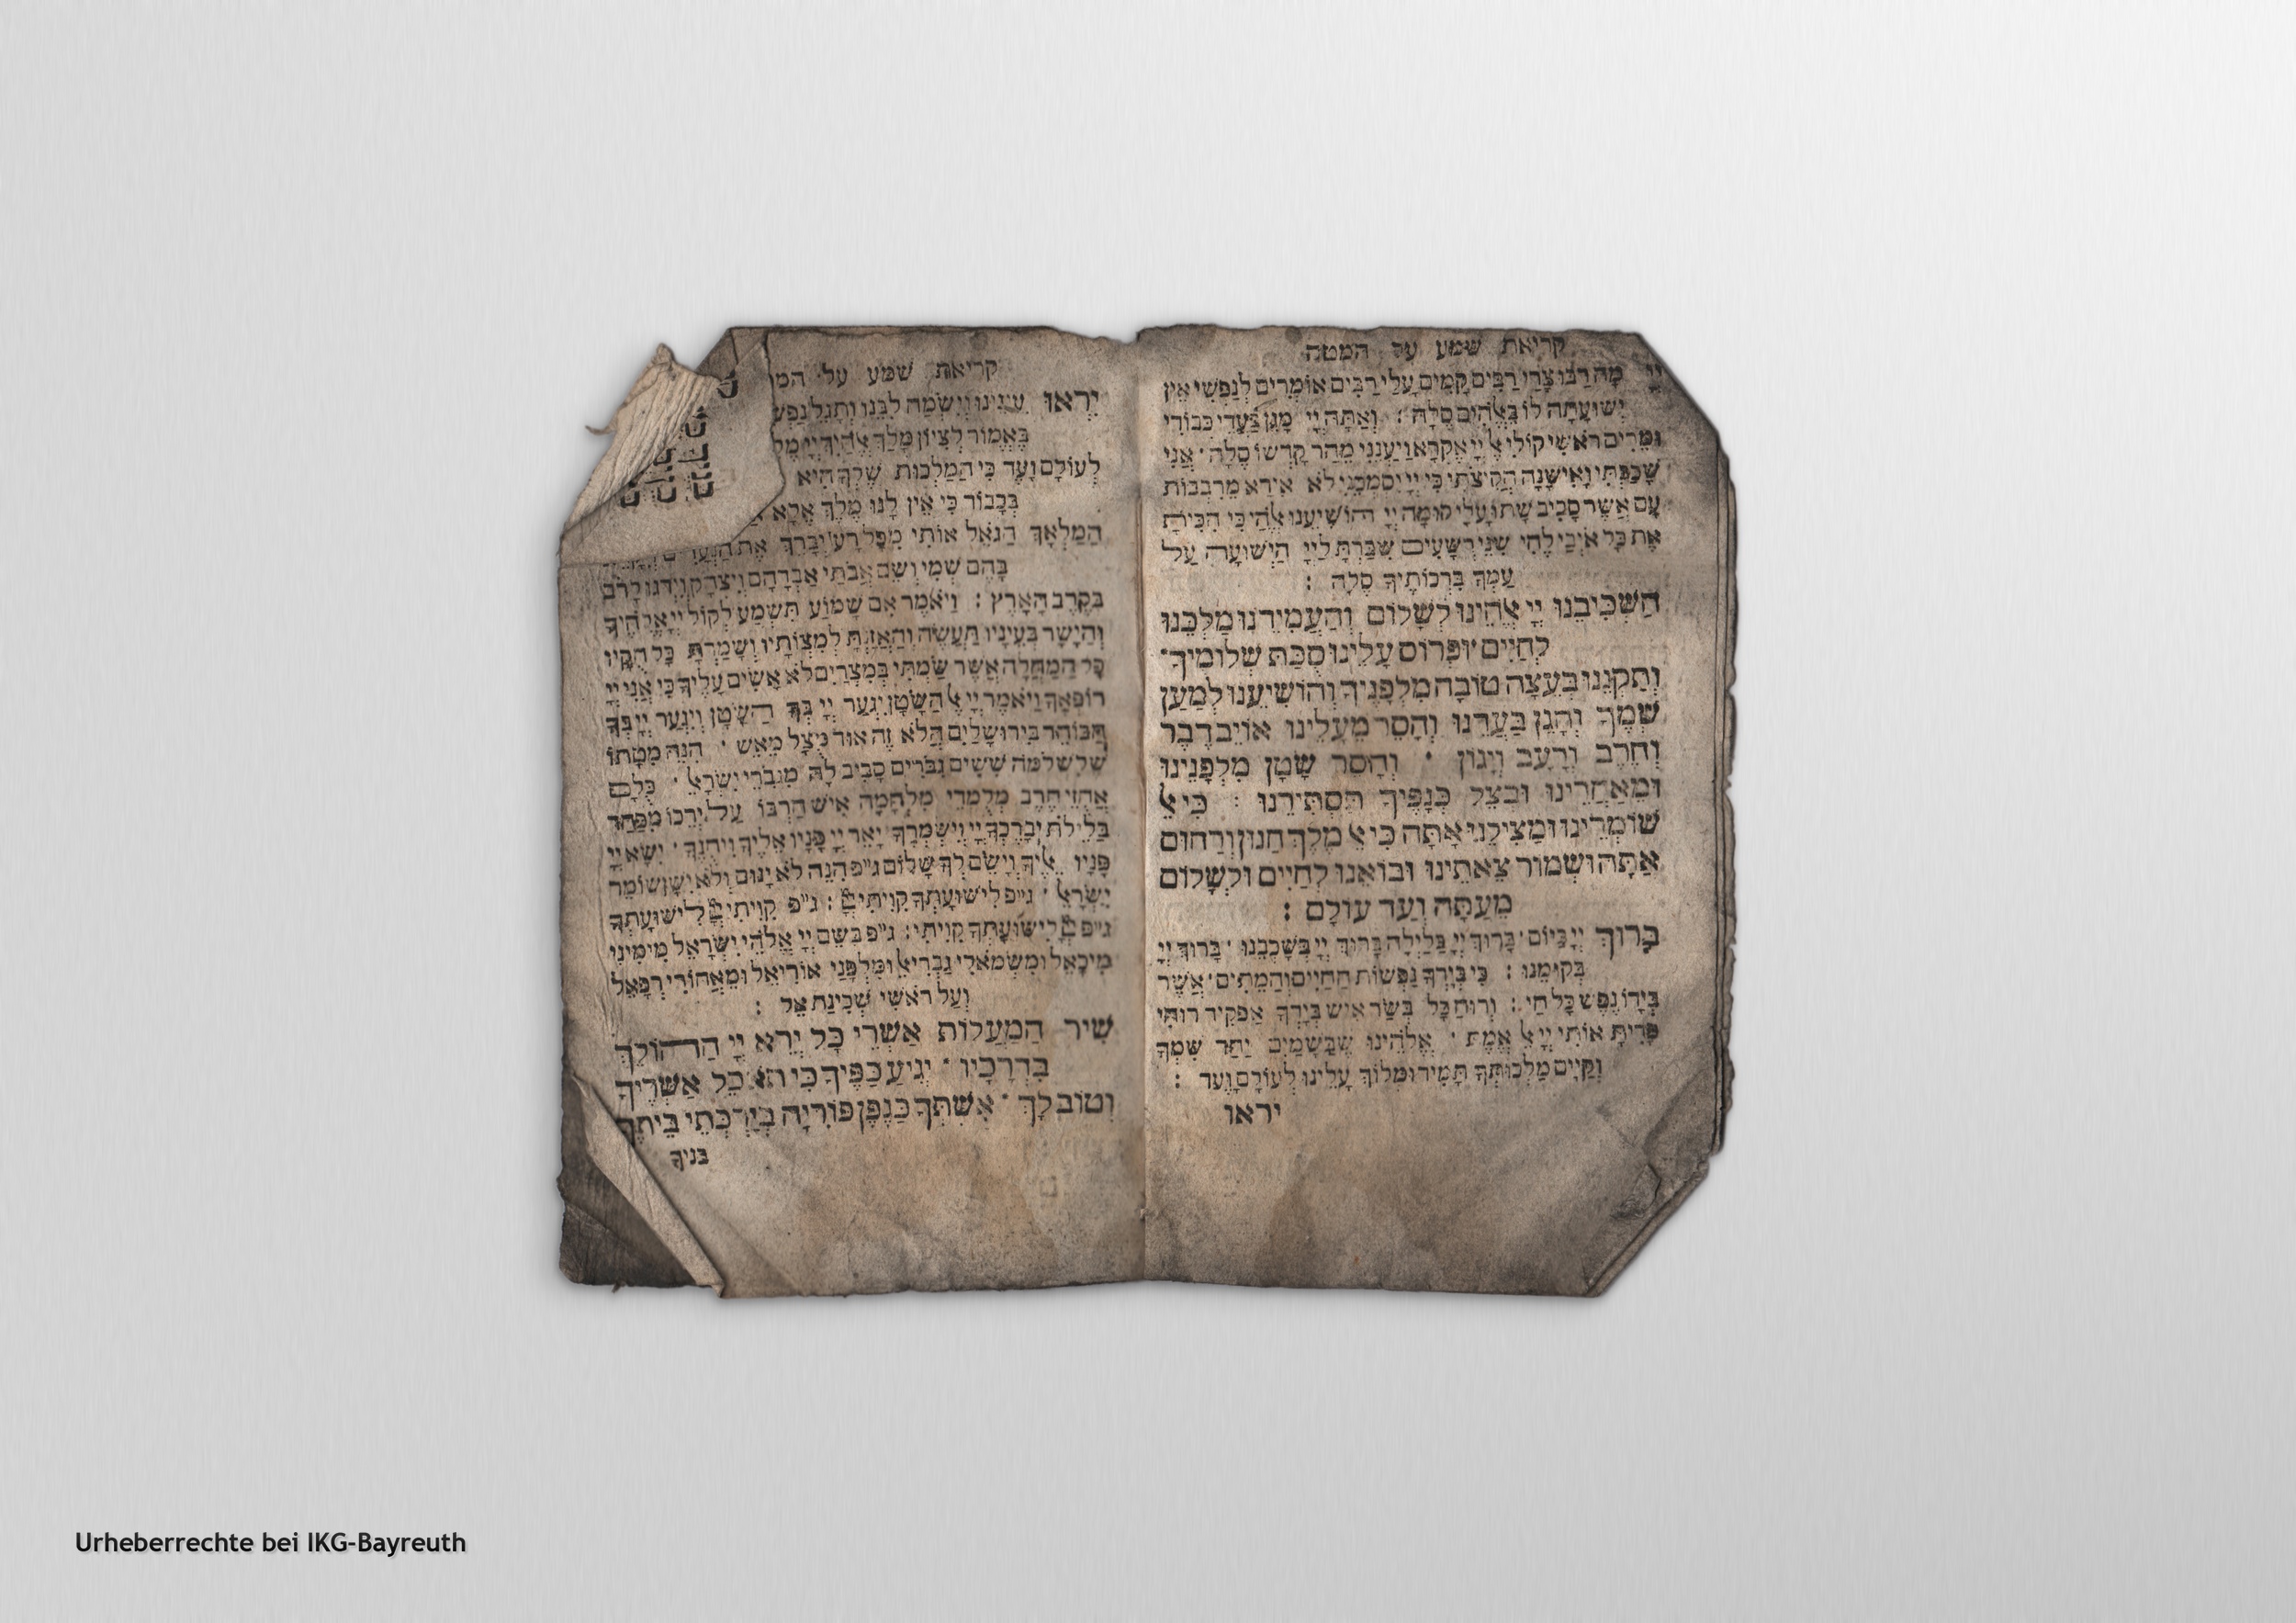 קריאת שמע על המטה
יְיָ מָה רַבּוּ צָרַי רַבִּים קָמִים עָלַי רַבִּים אוֹמְרִים לְנַפְשִׁי אֵין
יְשׁוּעָתָה לּוֹ בֵאלֹהִים סֶלָה : וְאַתָּה יְיָ מָגֵן בַּעֲדִי כְּבוֹדִי
וּמֵרִים רֹאשִׁי קוֹלִי אֶל יְיָ אֶקְרָא וַיַּעֲנֵנִי מֵהַר קָדְשׁוֹ סֶלָה · אֲנִי
שָׁכַבְתִּי וָאִישָׁנָה הֱקִיצֹתִי כִּי יְיָ יִסְמְכֵנִי לֹא אִירָא מֵרִבְבוֹת
עָם אֲשֶׁר סָבִיב שָׁתוּ עָלָי קוּמָה יְיָ הוֹשִׁיעֵנוּ אֱלֹהַי כִּי הִכִּיתָ
אֶת כָּל אֹיְבַי לֶחִי שִׁנֵּי רְשָׁעִים שִׁבַּרְתָּ לַיְיָ הַיְשׁוּעָה עַל
עַמְּךָ בִּרְכוֹתֶיךָ סֶלָה :
הַשְׁכִּיבֵנוּ יְיָ אֱלֹהֵינוּ לְשָׁלוֹם וְהַעֲמִידֵנוּ מַלְכֵּנוּ
לְחַיִּים וּפְרוֹס עָלֵינוּ סֻכַּת שְׁלוֹמֶיךָ ·
וְתַקְּנֵנוּ בְּעֵצָה טוֹבָה מִלְּפָנֶיךָ וְהוֹשִׁיעֵנוּ לְמַעַן
שְׁמֶךָ וְהָגֵן בַּעֲדֵנוּ וְהָסֵר מֵעָלֵינוּ אוֹיֵב דֶּבֶר
וְחֶרֶב וְרָעָב וְיָגוֹן · וְהָסֵר שָׂטָן מִלְּפָנֵינוּ
וּמֵאַחֲרֵינוּ וּבְצֵל כְּנָפֶיךָ תַּסְתִּירֵנוּ : כִּי אֵל
שׁוֹמְרֵינוּ וּמַצִּילֵנוּ אָתָּה כִּי אֵל מֶלֶךְ חַנּוּן וְרַחוּם
אַתָּה וּשְׁמוֹר צֵאתֵינוּ וּבוֹאֵנוּ לְחַיִּים וּלְשָׁלוֹם
מֵעַתָּה וְעַד עוֹלָם :
בָּרוּךְ יְיָ בַּיּוֹם · בָּרוּךְ יְיָ בַּלַּיְלָה בָּרוּךְ יְיָ בְּשָׁכְבֵנוּ · בָּרוּךְ יְיָ
בְּקוּמֵנוּ : כִּי בְיָדְךָ נַפְשׁוֹת הַחַיִּים וְהַמֵּתִים · אֲשֶׁר
בְּיָדוֹ נֶפֶשׁ כָּל חַי : וְרוּחַ כָּל בְּשַׂר אִישׁ בְּיָדְךָ אַפְקִיד רוּחִי
פָּדִיתָ אוֹתִי יְיָ אֵל אֱמֶת · אֱלֹהֵינוּ שֶׁבַּשָּׁמַיִם יַחֵד שִׁמְךָ
וְקַיֵּים מַלְכוּתְךָ תָּמִיד וּמְלוֹךְ עָלֵינוּ לְעוֹלָם וָעֶד :
יראו
קריאת שמע על המ
יִרְאוּ עֵינֵינוּ וְיִשְׂמַח לִבֵּנוּ וְתָגֵל נַפְשֵׁ
בֶּאֱמוֹר לְצִיּוֹן מָלַךְ אֱלֹהָיִךְ יְיָ מֶלֶ
לְעוֹלָם וָעֶד כִּי הַמַּלְכוּת שֶׁלְּךָ הִיא
בְּכָבוֹד כִּי אֵין לָנוּ מֶלֶךְ אֶלָּא
הַמַּלְאָךְ הַגֹּאֵל אוֹתִי מִכָּל רָע יְבָרֵךְ אֶת הַנְּעָרִים
בָּהֶם שְׁמִי וְשֵׁם אֲבֹתַי אַבְרָהָם וְיִצְחָק וְיִדְגּוּ לָרֹב
בְּקֶרֶב הָאָרֶץ : וַיֹּאמֶר אִם שָׁמוֹעַ תִּשְׁמַע לְקוֹל יְיָ אֱלֹהֶיךָ
וְהַיָּשָׁר בְּעֵינָיו תַּעֲשֶׂה וְהַאֲזַנְתָּ לְמִצְוֹתָיו וְשָׁמַרְתָּ כָּל חֻקָּיו
כָּל הַמַּחֲלָה אֲשֶׁר שַׂמְתִּי בְמִצְרַיִם לֹא אָשִׂים עָלֶיךָ כִּי אֲנִי יְיָ
רוֹפְאֶךָ וַיֹּאמֶר יְיָ אֶל הַשָּׂטָן יִגְעַר יְיָ בְּךָ הַשָּׂטָן וְיִגְעַר יְיָ בְּךָ
הַבּוֹחֵר בִּירוּשָׁלַיִם הֲלֹא זֶה אוּד מֻצָּל מֵאֵשׁ · הִנֵּה מִטָּתוֹ
שֶׁלִּשְׁלֹמֹה שִׁשִּׁים גִּבֹּרִים סָבִיב לָהּ מִגִּבֹּרֵי יִשְׂרָאֵל · כֻּלָּם
אֲחֻזֵי חֶרֶב מְלֻמְּדֵי מִלְחָמָה אִישׁ חַרְבּוֹ עַל יְרֵכוֹ מִפַּחַד
בַּלֵּילֹת יְבָרֶכְךָ יְיָ וְיִשְׁמְרֶךָ יָאֵר יְיָ פָּנָיו אֵלֶיךָ וִיחֻנֶּךָּ · יִשָּׂא יְיָ
פָּנָיו אֵלֶיךָ וְיָשֵׂם לְךָ שָׁלוֹם ג״פ הִנֵּה לֹא יָנוּם וְלֹא יִישָׁן שׁוֹמֵר
יִשְׂרָאֵל · ג״פ לִישׁוּעָתְךָ קִוִּיתִי יְיָ : ג״פ קִוִּיתִי יְיָ לִישׁוּעָתְךָ
ג״פ יְיָ לִישׁוּעָתְךָ קִוִּיתִי : ג״פ בְּשֵׁם יְיָ אֱלֹהֵי יִשְׂרָאֵל מִימִינִי
מִיכָאֵל וּמִשְּׂמֹאלִי גַּבְרִיאֵל וּמִלְּפָנַי אוֹרִיאֵל וּמֵאֲחוֹרַי רְפָאֵל
וְעַל רֹאשִׁי שְׁכִינַת אֵל :
שִׁיר הַמַּעֲלוֹת אַשְׁרֵי כָּל יְרֵא יְיָ הַהוֹלֵךְ
בִּדְרָכָיו · יְגִיעַ כַּפֶּיךָ כִּי תֹאכֵל אַשְׁרֶיךָ
וְטוֹב לָךְ · אֶשְׁתְּךָ כְּגֶפֶן פּוֹרִיָּה בְּיַרְכְּתֵי בֵיתֶךָ
בניך
Urheberrechte bei IKG-Bayreuth